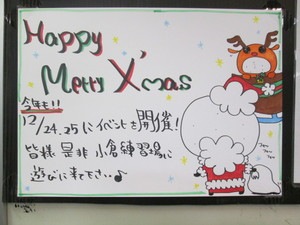 Happy
Merry X'mas
今年も!!
12/24.25にイベントを開催!
皆様 是非 小倉練習場に
遊びに来て下さい‥♪